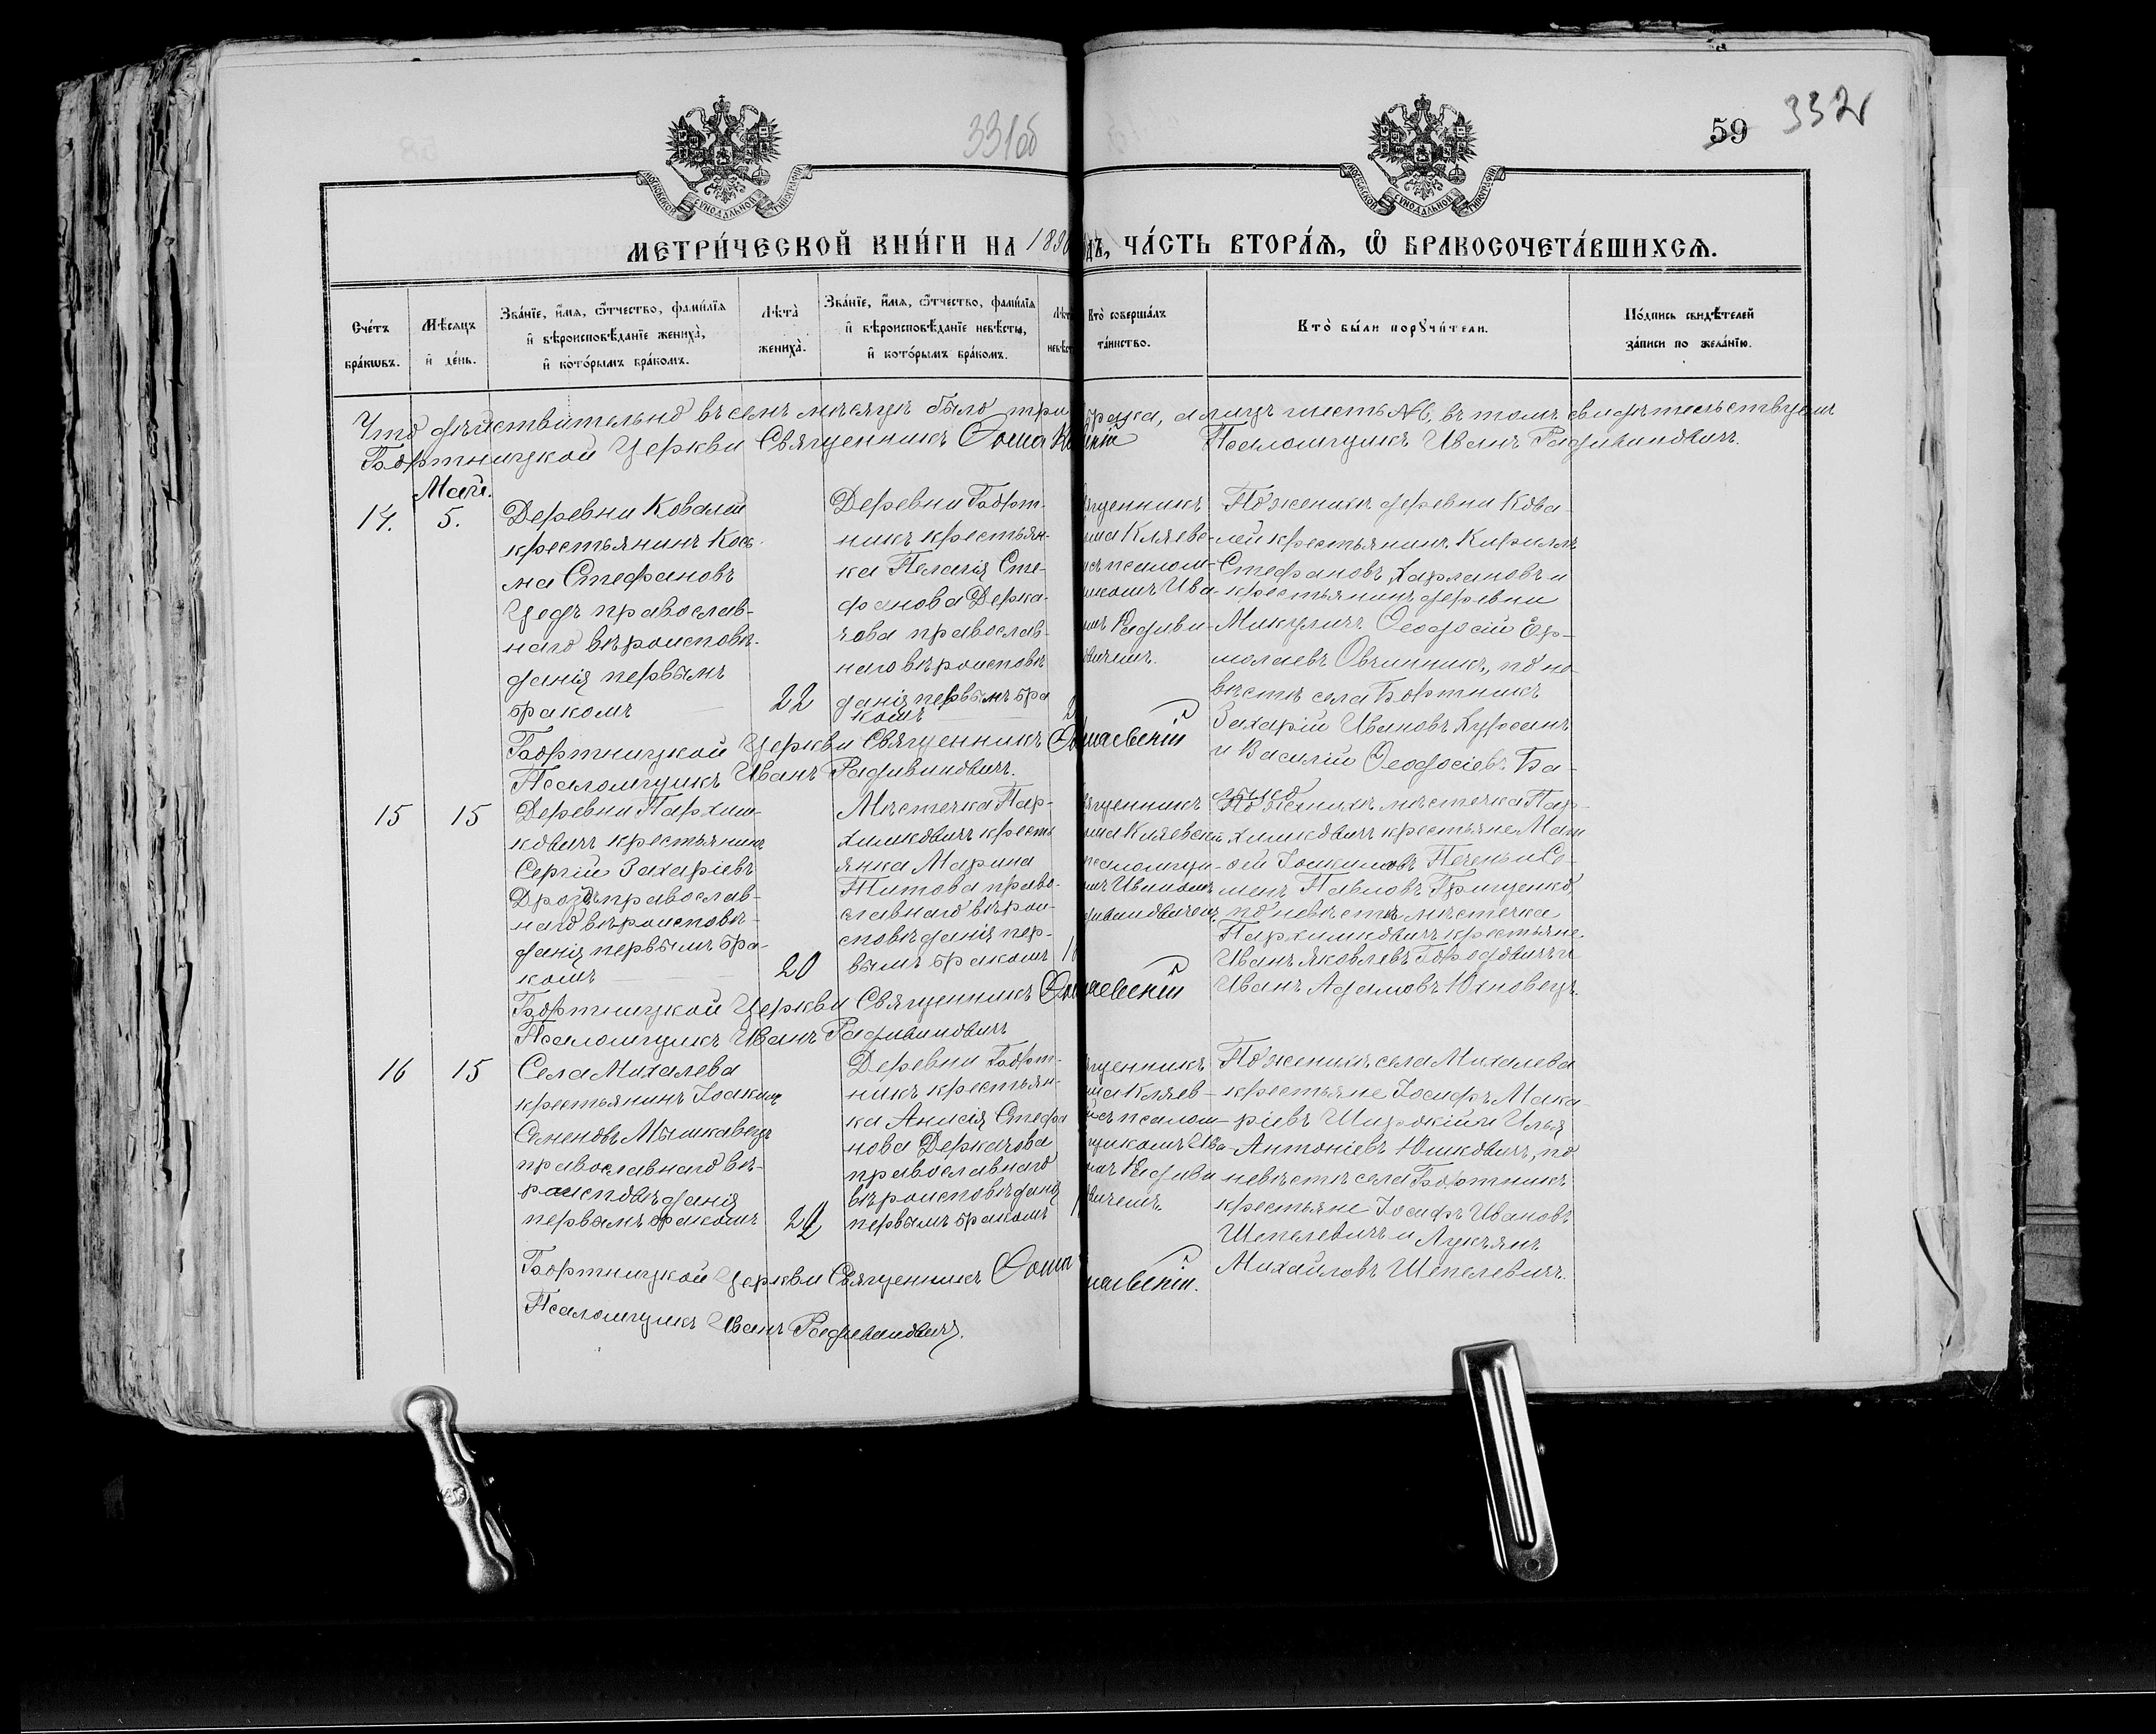 331об
59
332
МОСКОВСКОЙ СѴНОДАЛЬНОЙ ТИПОГРАФІИ
МОСКОВСКОЙ СѴНОДАЛЬНОЙ ТИПОГРАФІИ
МЕТРИ́ЧЕСКОЙ КНИ́ГИ НА 189
ДЪ, ЧА́СТЬ ВТОРА́Ѧ, Ѿ БРАКОСОЧЕТА́ВШИХСѦ.
Сче́тъ
бра́кѡвъ.
Мѣ́сяцъ
и҆ де́нь.
Зва́нїе, и҆́мя, ѻ҆́тчество, фами́лїя
и҆ вѣроисповѣ́данїе жениха̀,
и҆ кото́рымъ бра́комъ.
Лѣта̀
жениха̀.
Зва́нїе, и҆́мя, ѻ҆́тчество, фами́лїя
и҆ вѣроисповѣ́данїе невѣ́сты,
и҆ кото́рымъ бра́комъ.
Лѣт
невѣст
Кто̀ соверша́лъ
та́инство.
Кто̀ бы́ли порꙋчи́тели.
По́дпись свидѣ́телей
за́писи по жела́нїю.
Что дѣйствительно въ семъ мѣсяцѣ было три брака, а лицъ шесть №6, въ томъ свидѣтельствуемъ
Бортницкой Церкви Священникъ Ѳома Псаломщикъ Иванъ Радивиновичъ.
Май.
14.
5.
Деревни Ковалей
крестьянинъ Кось-
ма Стефановъ
Цедъ православ-
наго вѣроисповѣ-
данія первымъ
бракомъ
22
Деревни Борт-
никъ крестьян-
ка Пелагія Сте-
фанова Держа-
чова православ-
наго вѣроисповѣ
данія первымъ бра
комъ
2
ященникъ
ома Кляев-
съ псалом-
щикомъ Ива-
мъ Радиви-
вичемъ.
По женихѣ деревни Кова-
лей крестьянинъ Кириллъ
Стефановъ Харлановъ и
крестьянинъ деревни
Микуличъ Ѳеодосій Ер-
молаевъ Овчинникъ, по не-
вѣстѣ села Бортникъ
Захарій Ивановъ
и Василій Ѳеодосіевъ Ба-
Бортницкой Церкви Священникъ
Псаломщикъ Иванъ Радивиновичъ.
15
15
Деревни Пархим-
ковичъ крестьянинъ
Сергій Захаріевъ
Дроздъ православ-
наго вѣроисповѣ-
данія первымъ бра-
комъ
20
Мѣстечка Пар-
химковичъ кресть
янка Марина
Титова право-
славнаго вѣрои-
сповѣданія пер-
вымъ бракомъ
1
ященникъ
ома Кляевскій
псаломщи-
мъ Иваномъ
дивиновичемъ.
По женихѣ мѣстечка Пар-
химковичъ крестьяне Мат
ѳей Іоакимовъ Печень и Се-
менъ Павловъ Грищенко,
по невѣстѣ мѣстечка
Пархимковичъ крестьяне
Иванъ Яковлевъ Городовичъ и
Иванъ Адамовъ Юхновецъ.
Бортницкой Церкви Священникъ
Псаломщикъ Иванъ Радивиновичъ
16
15
Села Михалева
крестьянинъ Іоакимъ
Семеновъ Мышкавецъ
православнаго вѣ-
роисповѣданія
первымъ бракомъ
22
Деревни Борт-
никъ крестьян-
ка Анисія Стефа
нова Деркачова
православнаго
вѣроисповѣданія
первымъ бракомъ
1
ященникъ
ома Кляев-
съ псалом-
щикомъ Ива
мъ Радиви
вичемъ.
По женихѣ села Михалева
крестьяне Іосифъ Мака-
ріевъ Широкій и Илья
Антоніевъ Юшковичъ, по
невѣстѣ села Бортникъ
крестьяне Іосифъ Ивановъ
Шепелевичъ и Лукьянъ
Михайловъ Шепелевичъ.
Бортницкой Церкви Священникъ Ѳома
Псаломщикъ Иванъ Радивиновичъ.